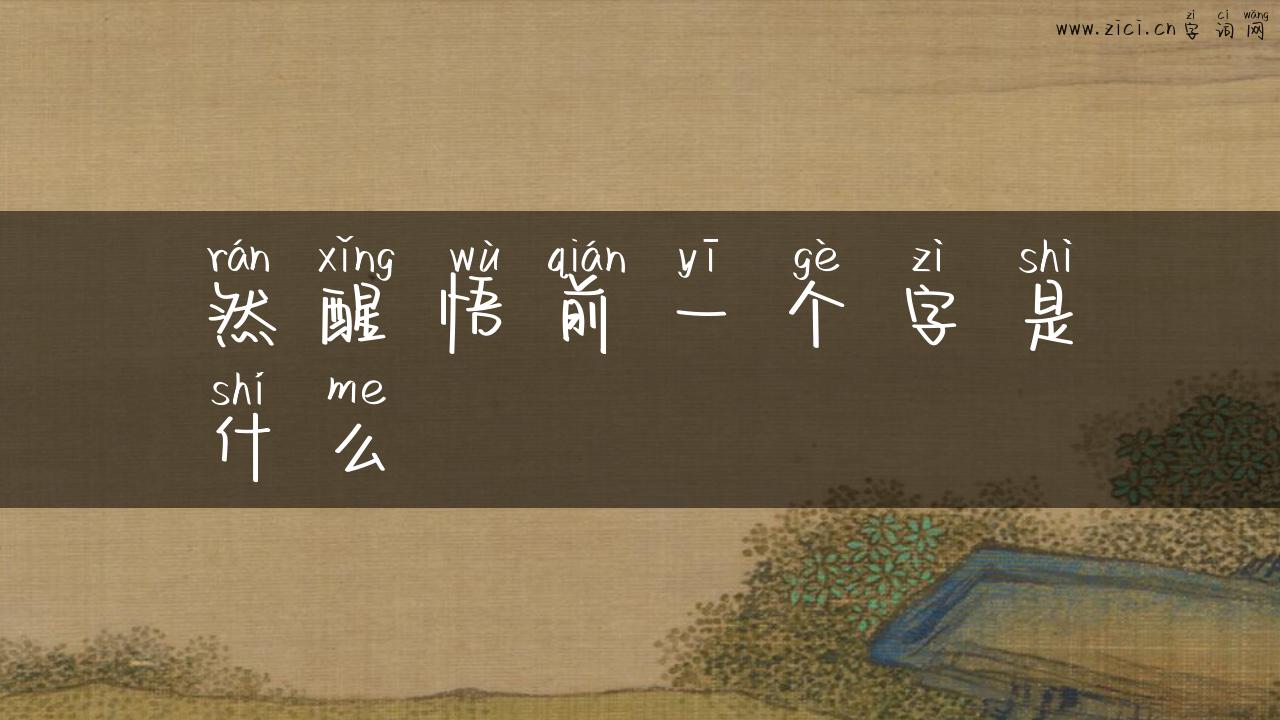 zì cí wǎng
www.zici.cn 字词网
rán xǐng wù qián yī gè zì shì
然醒悟前一个字是
shí me
什么